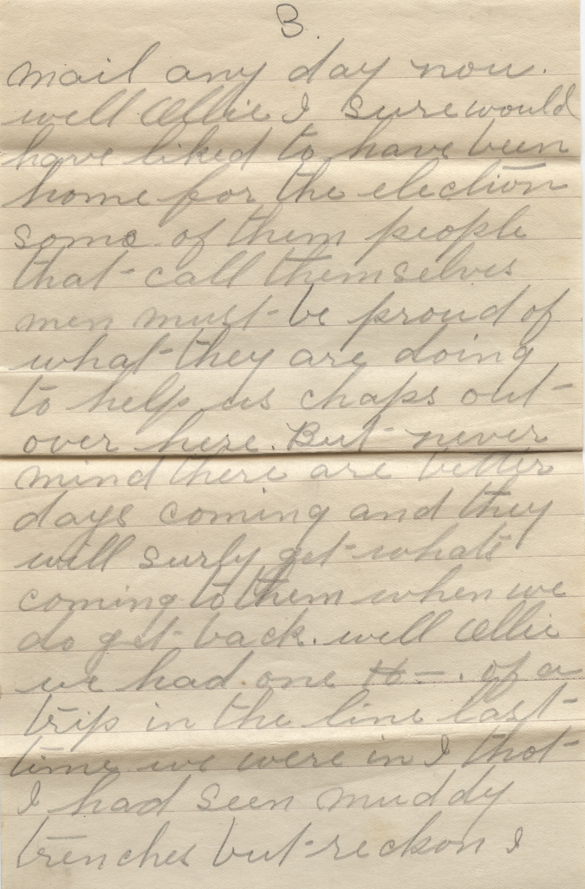 3.
mail any day now.
well Ollie I sure would
have liked to have been
home for the election
some of them people
that call themselves
men must be proud of
what they are doing
to help us chaps out
over here. But never
mind there are better
days coming and they
will surly get whats
coming to them when we
do get back. well Ollie
we had one H—. of a
trip in the line last
time we were in I thot
I had seen muddy
trenches but reckon I